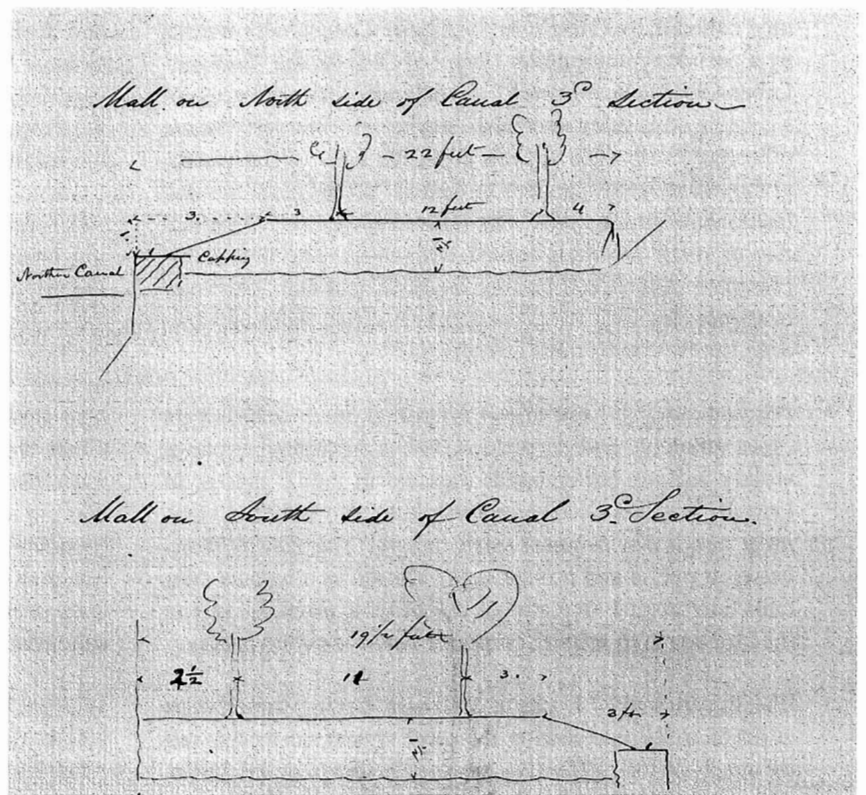 Mall on North side of Canal 3d Section
22 feet
3 3 12 feet 4
Capping
Northern Canal
Mall on South side of Canal 3d Section.
19 1/2 feet
3.
3 ft